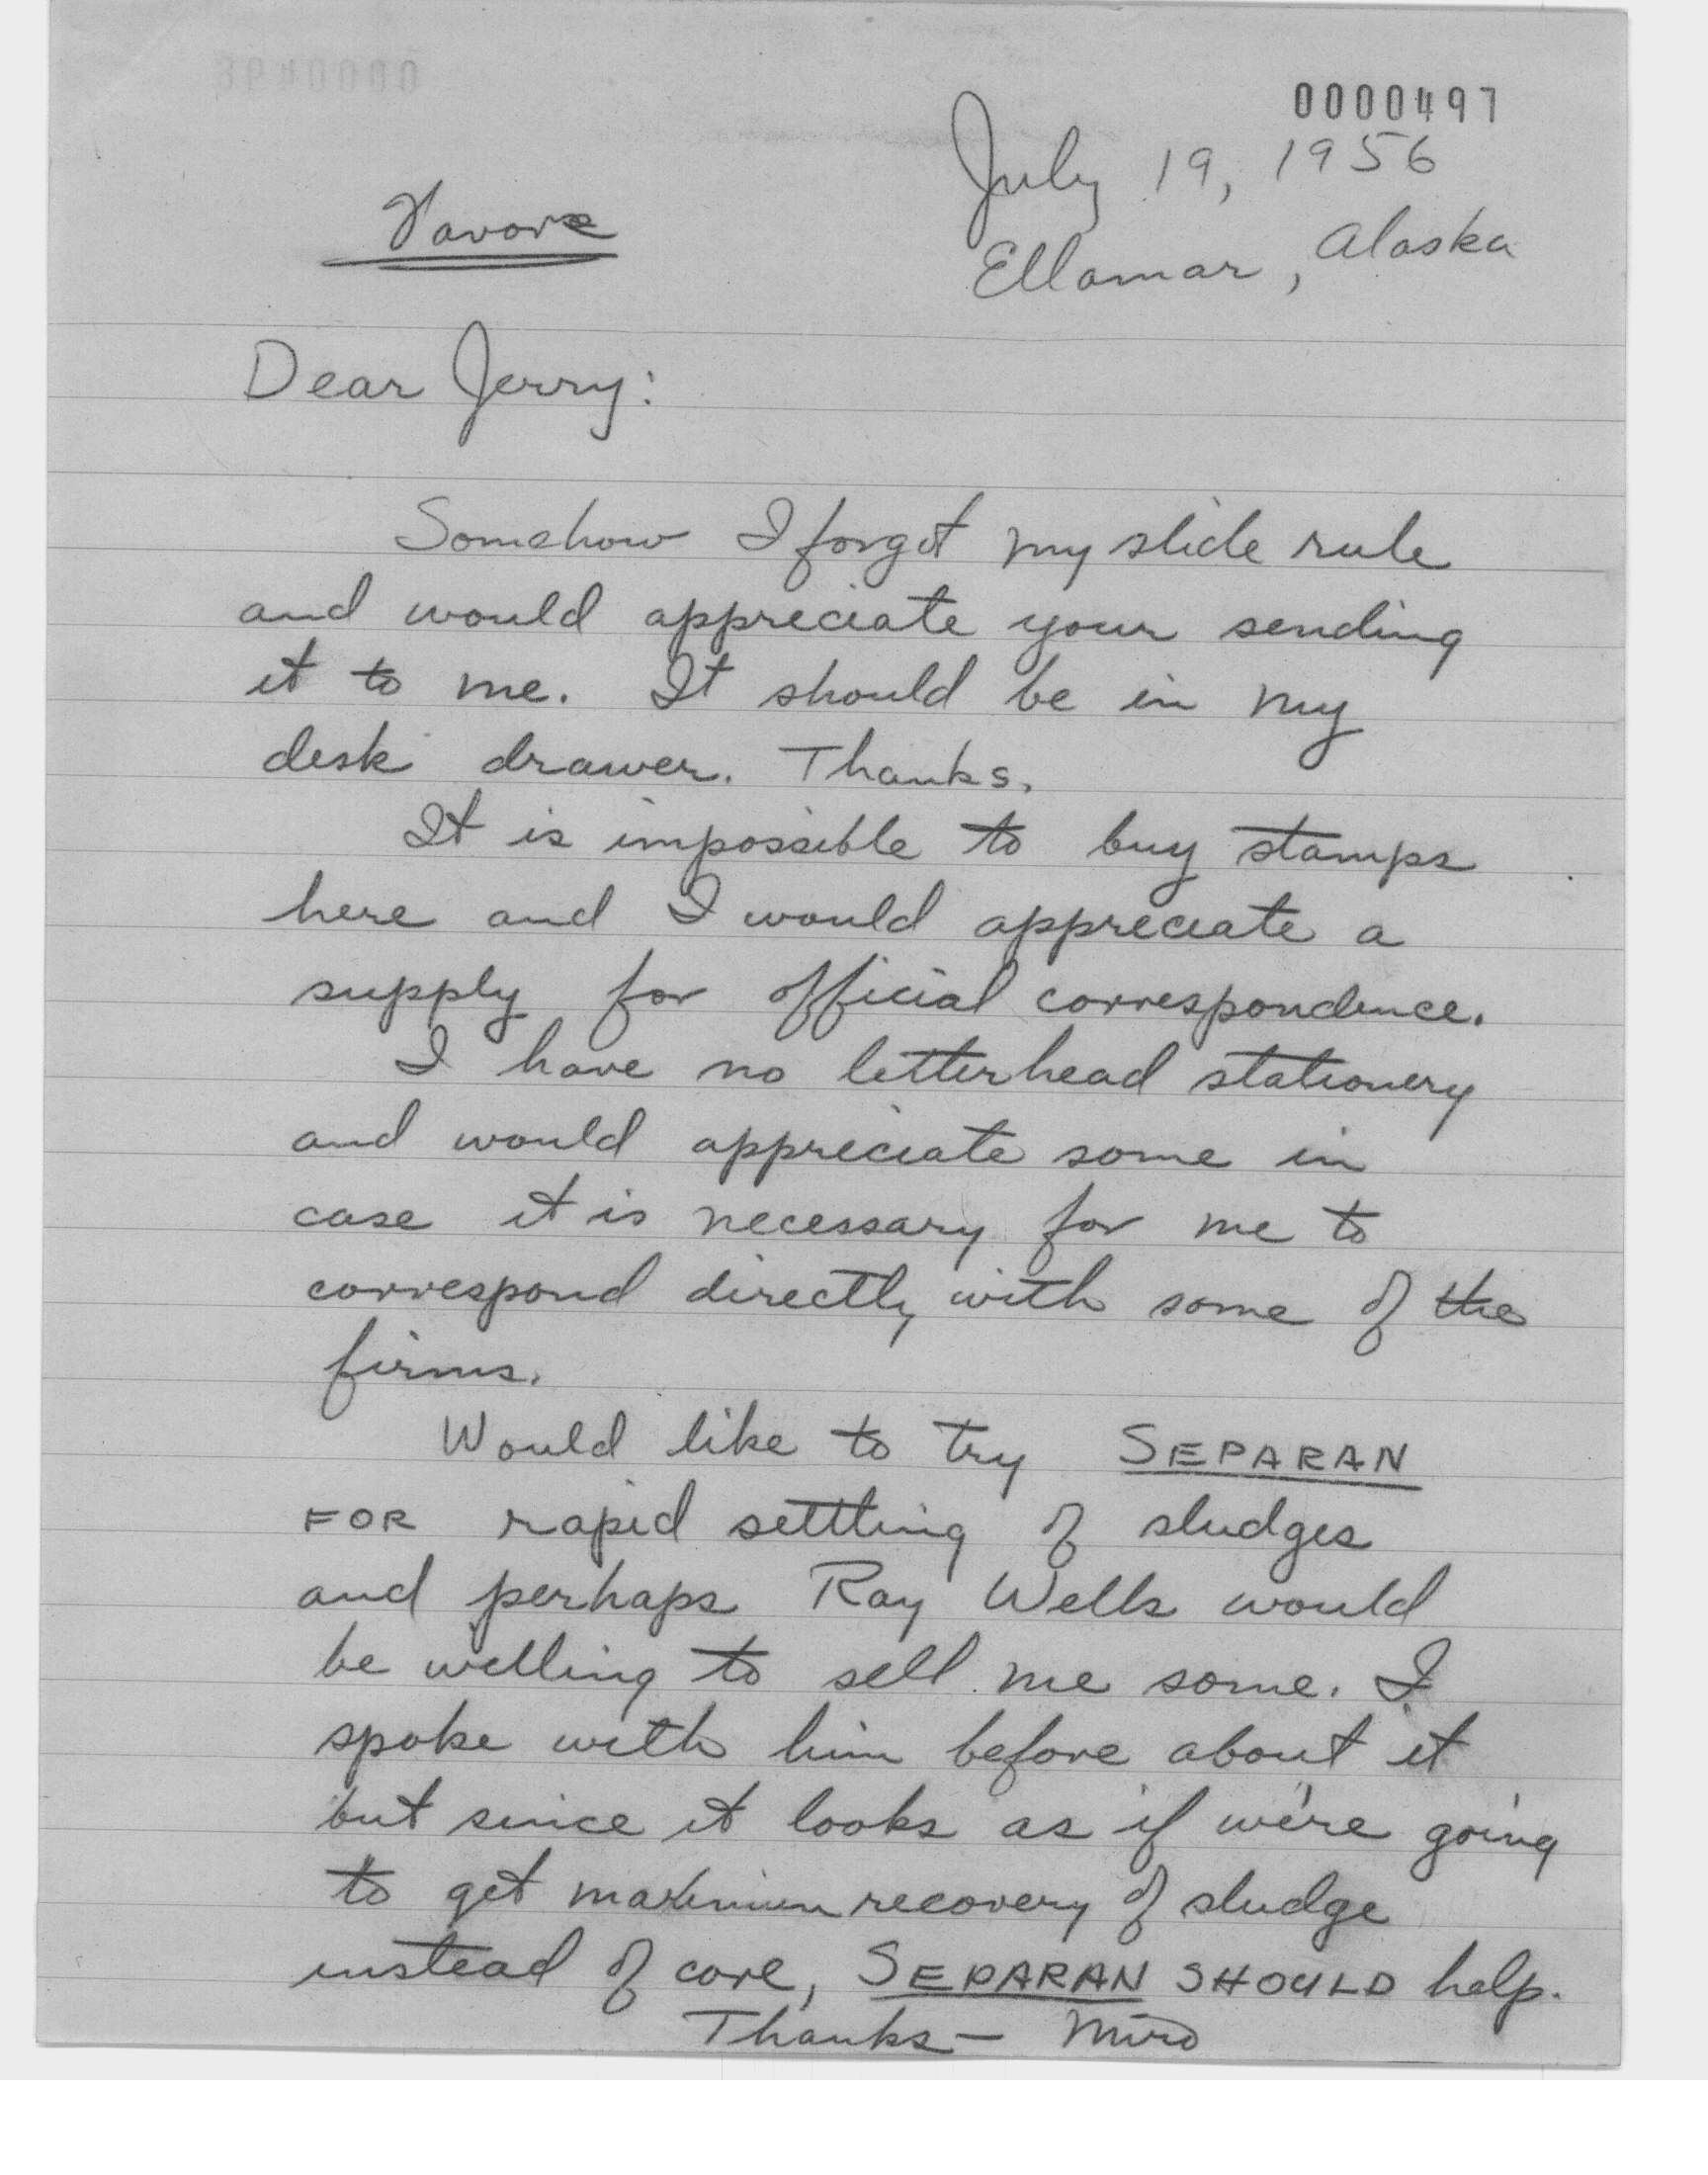 0000497
July 19, 1956
Ellamar, Alaska
Dear Jerry:
Somehow I forgot my slide rule
and would appreciate your sending
it to me. It should be in my
desk drawer. Thanks.
It is impossible to buy stamps
here and I would appreciate a
supply for official correspondence.
I have no letterhead stationery
and would appreciate some in
case it is necessary for me to
correspond directly with some of the
firms.
Would like to try SEPARAN
FOR rapid settling of sludges
and perhaps Ray Wells would
be willing to sell me some. I
spoke with him before about it
but since it looks as if we're going
to get maximum recovery of sludge
instead of core, SEPARAN SHOULD help.
Thanks — Miro